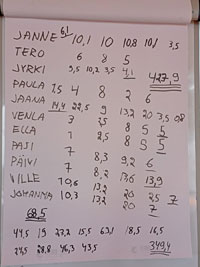 JANNE 6,1 10,1 10 10,8 10,1 3,5
TERO 6 8 5
JYRKI 9,5 10,2 3,5 4,1 427,9
PAULA 7,5 4 8 2 6
JAANA 14,4 22,5 9 13,2 20 3,5
VENLA 3 2,5 8 5
ELLA 1 2,5 8 5
PASI 7
PÄIVI 7 8,3 9,2 6
VILLE 10,6 8,2 13,9
JOHANNA 10,3 13,2 20 7
68,5
19 15,5 63,1 18,5 16,5
28,8 46,3 43,5 349,4